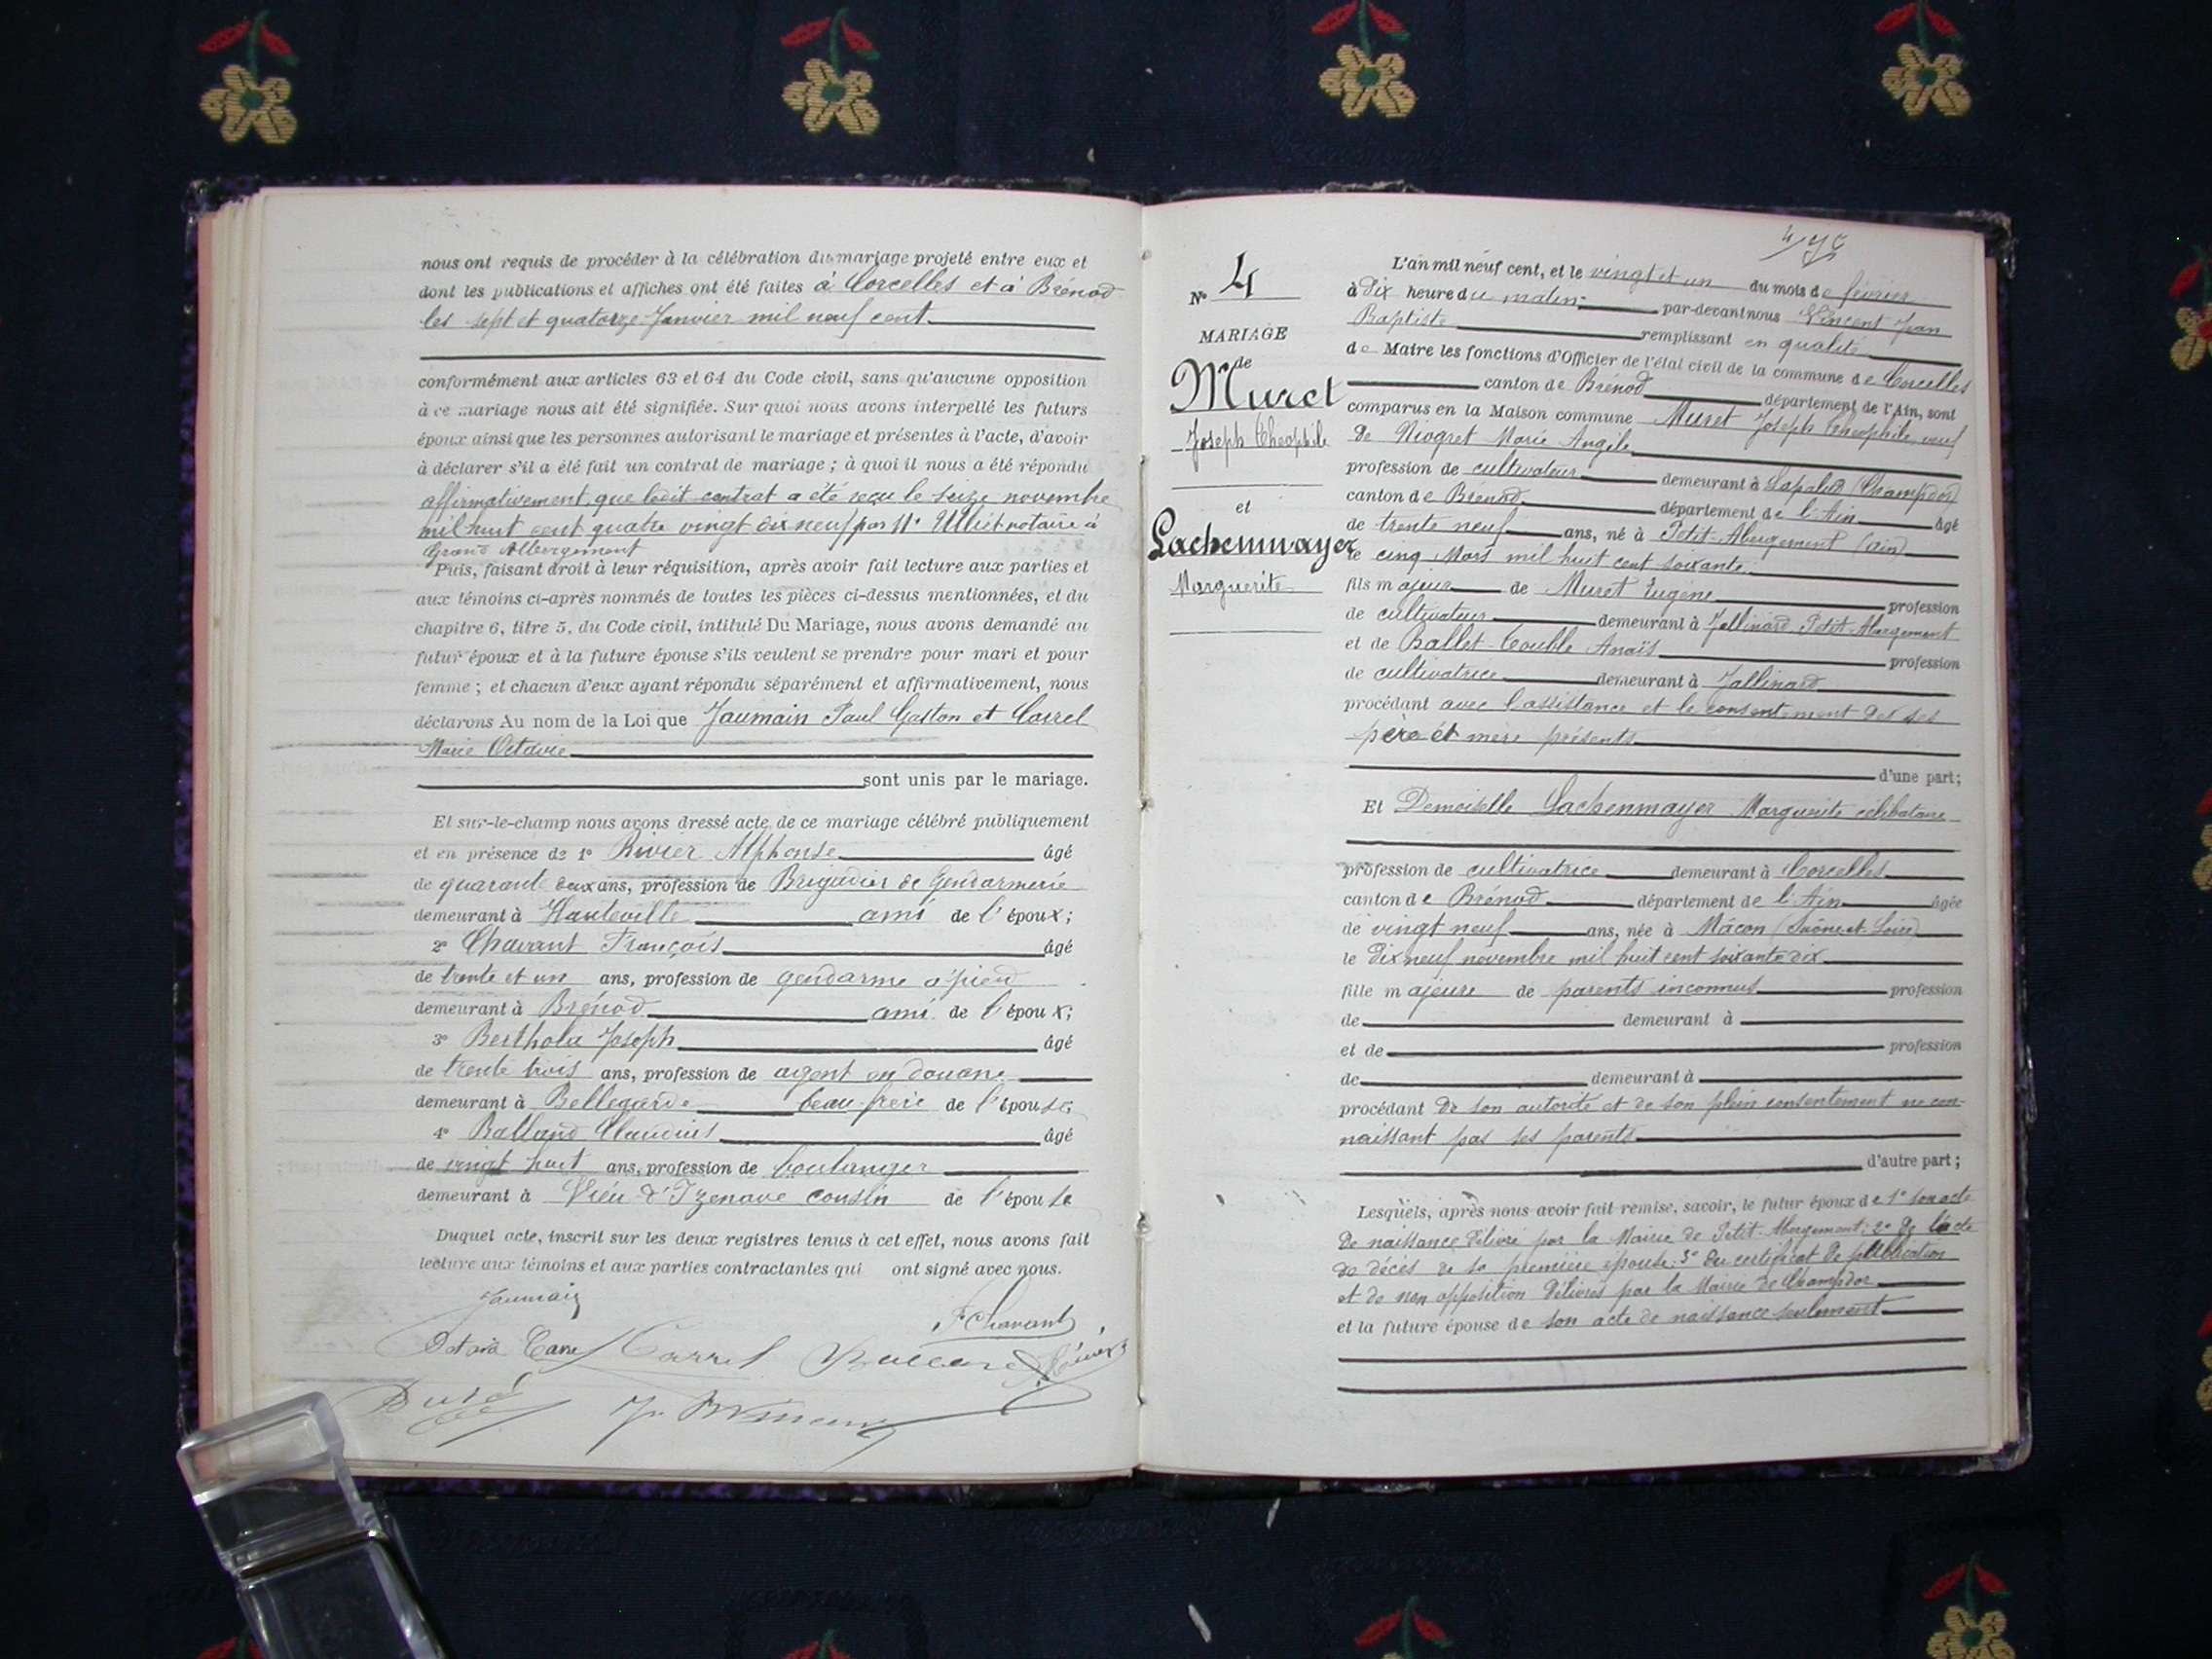 nous ont requis de procéder à la célébration du mariage projeté entre eux et
dont les publications et affiches ont été faites à Corcelles et à Brénod
les sept et quatorze Janvier mil neuf cent
conformément aux articles 63 et 64 du Code civil, sans qu'aucune opposition
à ce mariage nous ait été signifiée. Sur quoi nous avons interpellé les futurs
époux ainsi que les personnes autorisant le mariage et présentes à l'acte, d'avoir
à déclarer s'il a été fait un contrat de mariage ; à quoi il nous a été répondu
affirmativement, que ledit contrat a été reçu le seize novembre
mil huit cent quatre vingt dix neuf par Mᵉ notaire à
Grand Abergement
Puis, faisant droit à leur réquisition, après avoir fait lecture aux parties et
aux témoins ci-après nommés de toutes les pièces ci-dessus mentionnées, et du
chapitre 6, titre 5, du Code civil, intitulé Du Mariage, nous avons demandé au
futur époux et à la future épouse s'ils veulent se prendre pour mari et pour
femme ; et chacun d'eux ayant répondu séparément et affirmativement, nous
déclarons Au nom de la Loi que Jaumain Paul Gaston et Carrel
Marie Octavie
sont unis par le mariage.
Et sur-le-champ nous avons dressé acte de ce mariage célébré publiquement
et en présence de 1º Rivier Alphonse âgé
de quarante deux ans, profession de Brigadier de Gendarmerie
demeurant à Hauteville ami de l'époux;
2º Chavant François âgé
de trente et un ans, profession de gendarme à pied
demeurant à Brénod ami de l'époux;
3º Berthola Joseph âgé
de trente trois ans, profession de agent en douane
demeurant à Bellegarde beau-frère de l'épouse;
4º Balland Claudius âgé
de vingt huit ans, profession de boulanger
demeurant à Vieu d'Izenave cousin de l'épouse
Duquel acte, inscrit sur les deux registres tenus à cet effet, nous avons fait
lecture aux témoins et aux parties contractantes qui ont signé avec nous.
Jaumain
F Chavant
Octavie Carrel Carrel
Nº 4
MARIAGE
de
Muret
Joseph Théophile
et
Lachenmayer
Marguerite
L'an mil neuf cent, et le vingt et un du mois de février
à dix heure du matin par-devant nous Vincent Jean
Baptiste remplissant en qualité
de Maire les fonctions d'Officier de l'état civil de la commune de Corcelles
canton de Brénod département de l'Ain, sont
comparus en la Maison commune Muret Joseph Théophile veuf
de Niogret Marie Angèle
profession de cultivateur demeurant à Lapalud (Champdor)
canton de Brénod département de l'Ain âgé
de trente neuf ans, né à Petit-Abergement (Ain)
le cinq Mars mil huit cent soixante
fils majeur de Muret Eugène profession
de cultivateur demeurant à Jallinard Petit-Abergement
et de Ballet-Couble Anaïs profession
de cultivatrice demeurant à Jallinard
procédant avec l'assistance et le consentement des ses
père et mère présents
d'une part;
Et Demoiselle Lachenmayer Marguerite célibataire
profession de cultivatrice demeurant à Corcelles
canton de Brénod département de l'Ain âgée
de vingt neuf ans, née à Mâcon (Saône-et-Loire)
le dix neuf novembre mil huit cent soixante dix
fille majeure de parents inconnus profession
de demeurant à
et de profession
de demeurant à
procédant de son autorité et de son plein consentement ne con-
naissant pas ses parents
d'autre part;
Lesquels, après nous avoir fait remise, savoir, le futur époux de 1º son acte
de naissance délivré par la Mairie de Petit-Abergement; 2º de l'acte
de décès de sa première épouse; 3º du certificat de publication
et de non opposition délivrés par la Mairie de Champdor
et la future épouse de son acte de naissance seulement